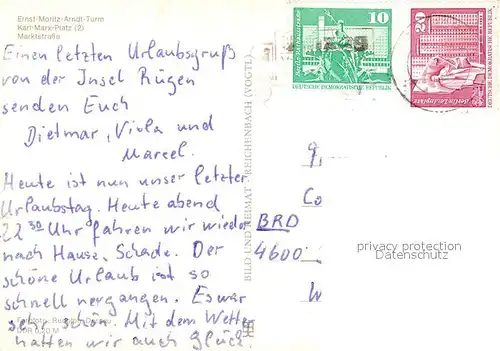 Ernst-Moritz-Arndt-Turm
Karl-Marx-Platz (2)
Marktstraße
Einen letzten Urlaubsgruß
von der Insel Rügen
senden Euch
Dietmar, Viola und
Marcel.
Heute ist nun unser letzter
Urlaubstag. Heute abend
22 30 Uhr fahren wir wieder
nach Hause, Schade. Der
schöne Urlaub ist so
schnell vergangen. Es war
sehr schön. Mit dem Wetter
hatten wir auch Glück.
DDR 0,20 M
BILD UND HEIMAT REICHENBACH (VOGTL)
10
DEUTSCHE DEMOKRATISCHE REPUBLIK
20
DEUTSCHE DEMOKRATISCHE REPUBLIK
Berlin-Leninplatz
BRD
4600
privacy protection
Datenschutz